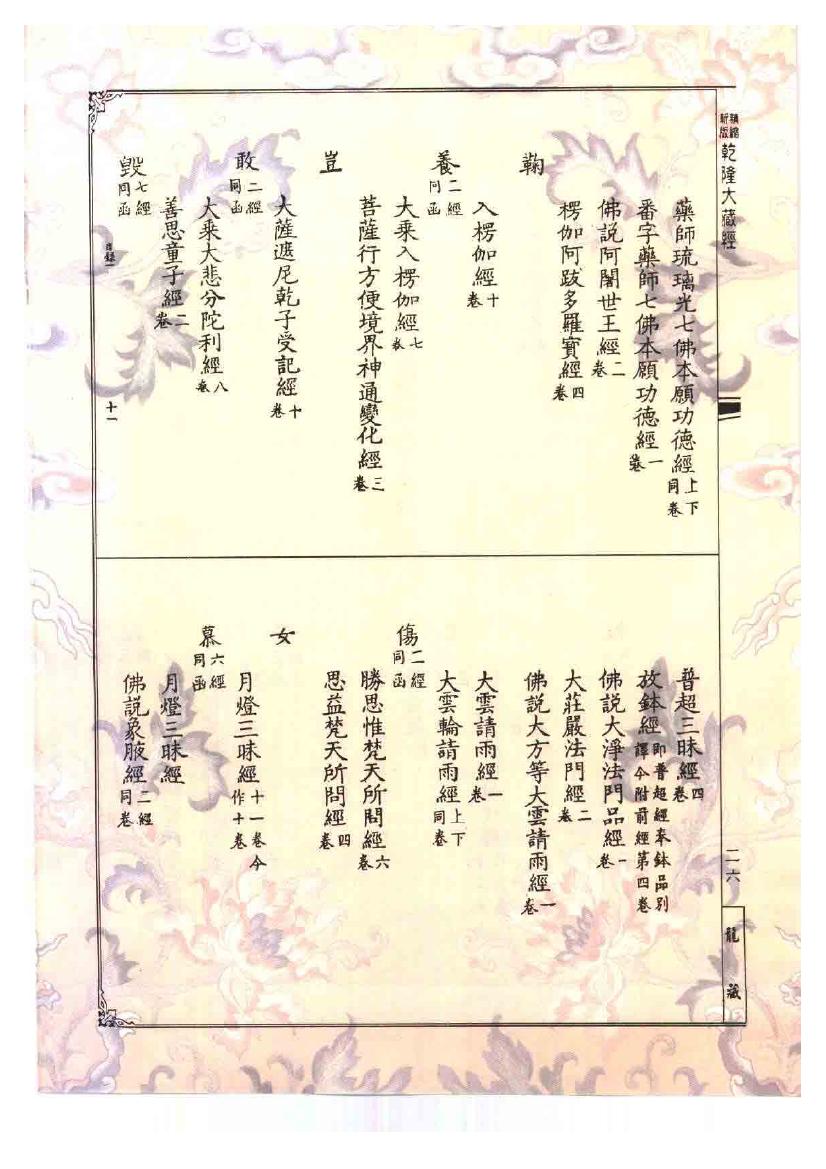 精縮新版 乾隆大藏經
藥師琉璃光七佛本願功德經上下同卷
番字藥師七佛本願功德經一卷
佛説阿闍世王經二卷
楞伽阿跋多羅寶經四卷
鞠
入楞伽經十卷
養二經同函
大乘入楞伽經七卷
菩薩行方便境界神通變化經三卷
豈
大薩遮尼乾子受記經十卷
敢二經同函
大乘大悲分陀利經八卷
善思童子經二卷
毀七經同函
目錄一
十一
普超三昧經四卷
放鉢經即普超經奉鉢品別譯今附前經第四卷
佛説大淨法門品經一卷
大莊嚴法門經二卷
佛説大方等大雲請雨經一卷
大雲請雨經一卷
大雲輪請雨經上下同卷
傷二經同函
勝思惟梵天所問經六卷
思益梵天所問經四卷
女
月燈三昧經十一卷今作十卷
慕六經同函
月燈三昧經
佛説象腋經二經同卷
二六
龍藏